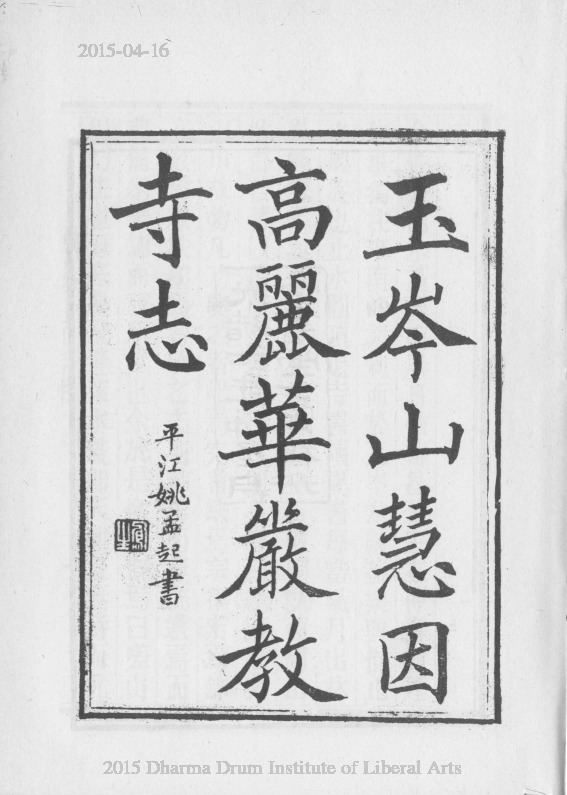 2015-04-16
玉岑山慧因
高麗華嚴教
寺志
平江姚孟起書
2015 Dharma Drum Institute of Liberal Arts